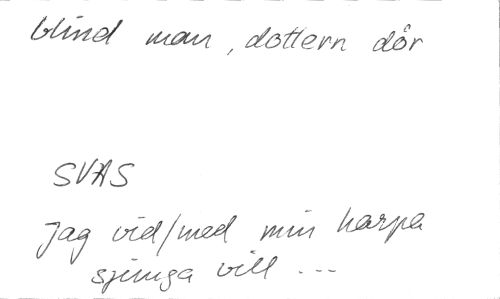 blind man, dottern dör
SVAS
Jag vid/med min harpa
sjunga vill ...